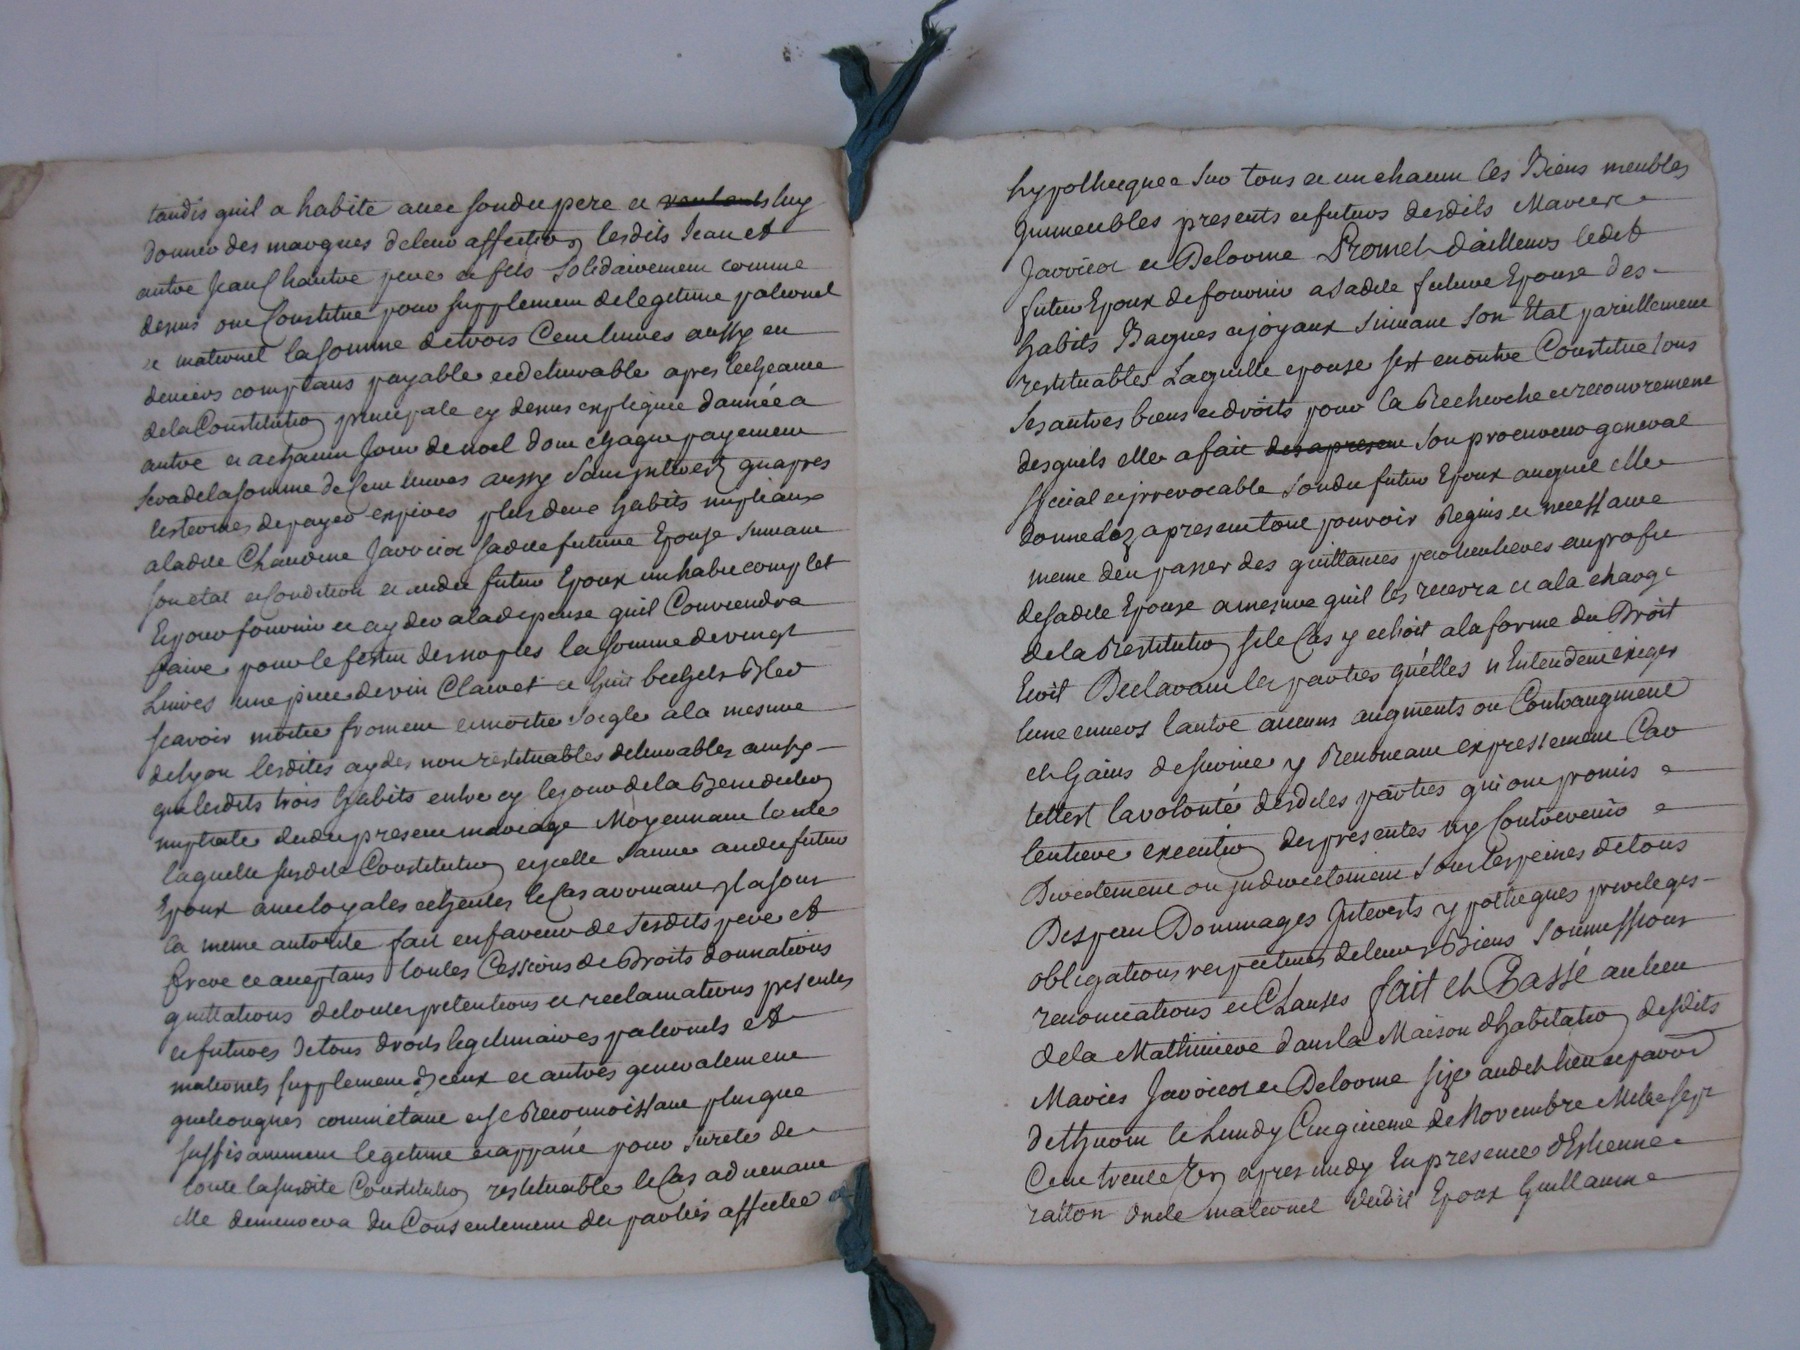 tandis quil a habite avec sondit pere et veulents luy
donner des marques deleur affection lesdits Jean et
autre Jean Chautre pere et fils Solidairement comme
dessus ont Constitué pour supplement de legitime paternel
et maternel la somme detrois Cent livres aussy en
deniers comptans payable et delivrable apres lecheance
dela Constitution principale cy dessus expliquée dannée a
autre et achacun Jour de noel dont chaque payement
sera delasomme de Cent livres aussy sans Interest quapres
les termes depayer expirés plus deux habits nuptiaux
aladite Claudine Javorier sadite future Epouse suivant
son etat et Condition et audit futur Epoux un habit complet
Et pour fournir et ayder ala depense quil Conviendra
faire pour le festin desnopces la somme devingt
Livres une piece de vin Clairet et huit bechets Bled
scavoir moitié froment et moitié Seigle ala mesure
de lyon lesdites aydes non restituables delivrables aussy
que lesdits trois habits entre cy le jour dela Benediction
nuptiale dudit present mariage Moyennant toute
laquelle susdite Constitution et icelle sauve audit futur
Epoux avec loyales echeutes le Cas avenant Il a sous
la meme autorité fait en faveur de sesdits pere et
frere et acceptans toutes Cessions de Droits donnations
quittations de toutes pretentions et reclamations presentes
et futures de tous droits legitimaires paternels et
maternels supplement diceux et autres generalement
quelconques comme etant et se Reconnoissant plus que
suffisamment legitimé et appané pour Sureté de
toute la susdite Constitution restituable le Cas advenant
elle demeurera du Consentement des parties affectée et
hypothequée sur tous et un chacun les Biens meubles
Immeubles presents et futurs desdits Mariés
Javorier et Delorme Promet dailleurs ledit
futur Epoux de fournir a sadite future Epouse des
habits Bagues et joyaux suivant son Etat pareillement
restituables Laquelle epouse sest en outre Constitué tous
ses autres biens et droits pour la Recherche et recouvrement
desquels elle a fait des a present son procureur general
special et irrevocable sondit futur Epoux auquel elle
donne dez apresent tout pouvoir Requis et necessaire
meme den passer des quittances pertinentes au profit
de sadite Epouse amesure quil les recevra et ala charge
de la Restitution sile Cas y echoit ala forme du Droit
Ecrit Declarant les parties quélles n Entendent exiger
lune envers lautre aucuns augments ou Contraugment
et Gains de survie y Renonçant expressement Car
telle est la volonté desdites parties qui ont promis
lentiere execution des presentes ny Contrevenir
Directement ou indirectement sous les peines de tous
Despens Dommages Interests ypotheques privileges
obligations respectives de leurs Biens Soumissions
renonciations et Clauses fait et Passé au lieu
dela Mathiniere dans la Maison dhabitation desdits
Mariés Javorier et Delorme size audit lieu et paroisse
de thurin le Lundy Cinquieme de Novembre Mil Sept
Cent trente Six apres midy En presence d'Estienne
ratton Oncle maternel dudit Epoux Guillaume